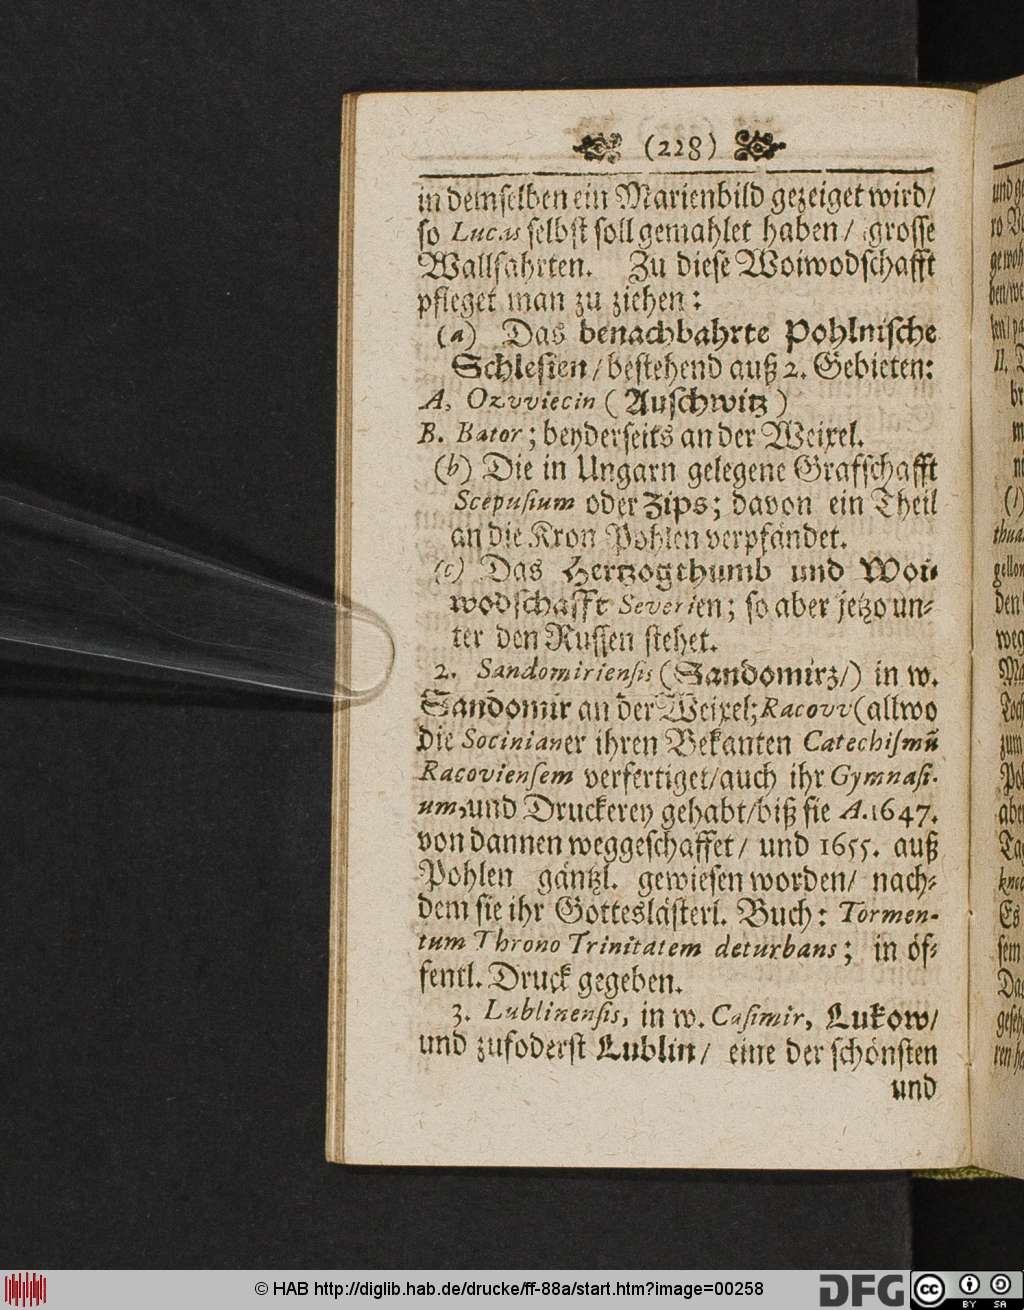 (228)
in demselben ein Marienbild gezeiget wird/
so Lucas selbst soll gemahlet haben/ grosse
Wallfahrten. Zu diese Woiwodschafft
pfleget man zu ziehen:
(a) Das benachbahrte Pohlnische
Schlesien/ bestehend auß 2. Gebieten:
A, Ozvviecin (Auschwitz)
B. Bator; beyderseits an der Weixel.
(b) Die in Ungarn gelegene Grafschafft
Scepusium oder Zips; davon ein Theil
an die Kron Pohlen verpfändet.
(c) Das Hertzogthumb und Woi-
wodschafft Severien; so aber jetzo un-
ter den Russen stehet.
2. Sandomiriensis (Sandomirz/) in w.
Sandomir an der Weixel; Racovv (allwo
die Socinianer ihren Bekanten Catechismũ
Racoviensem verfertiget/ auch ihr Gymnasi-
um, und Druckerey gehabt/ biß sie A. 1647.
von dannen weggeschaffet/ und 1655. auß
Pohlen gäntzl. gewiesen worden/ nach-
dem sie ihr Gotteslästerl. Buch: Tormen-
tum Throno Trinitatem deturbans; in öf-
fentl. Druck gegeben.
3. Lublinensis, in w. Casimir, Lukow/
und zufoderst Lublin/ eine der schönsten
und
© HAB http://diglib.hab.de/drucke/ff-88a/start.htm?image=00258
DFG
cc BY SA